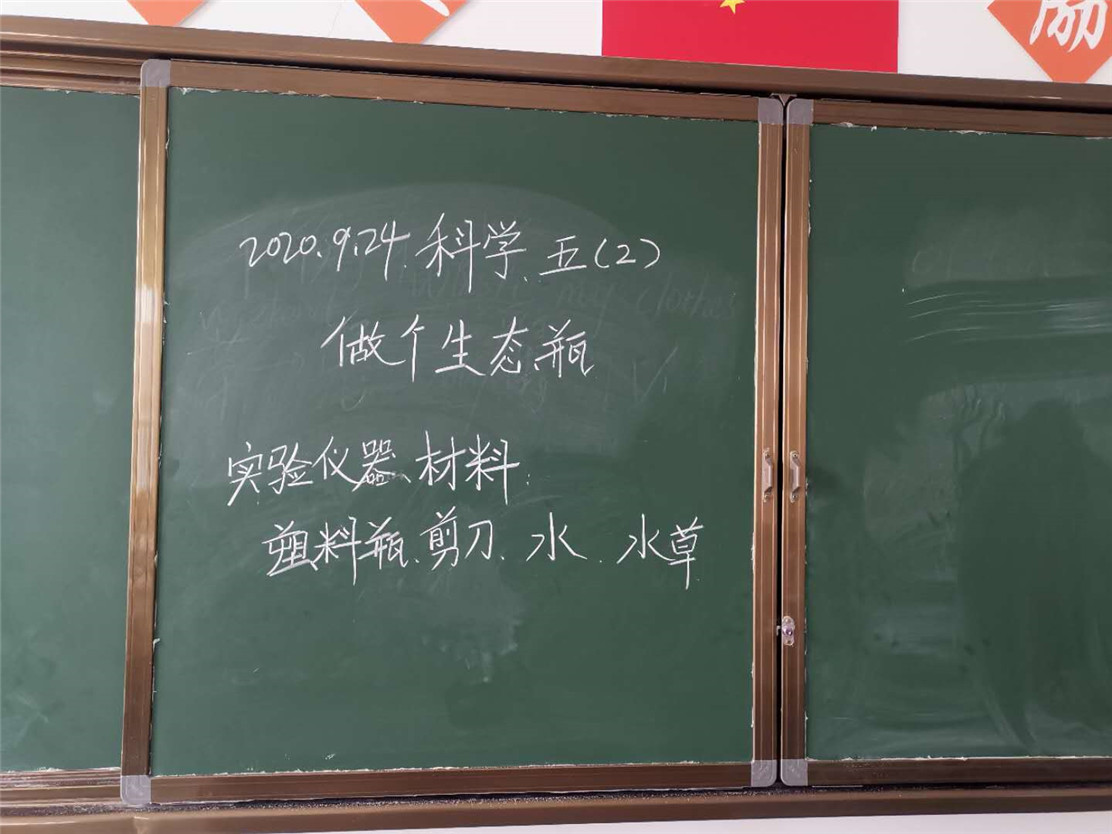 励
2020.9.24. 科学. 五(2)
做个生态瓶
实验仪器、材料:
塑料瓶、剪刀、水、水草